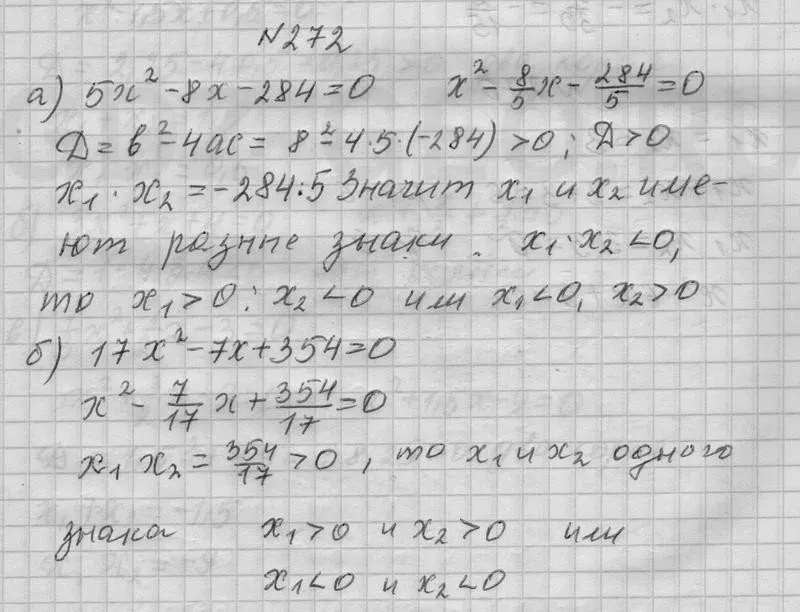 N272
а) 5x² - 8x - 284 = 0 x² - 8/5 x - 284/5 = 0
Д = в² - 4ас = 8² - 4·5·(-284) > 0; Д > 0
x₁ · x₂ = -284:5 Значит x₁ и x₂ име-
ют разные знаки. x₁·x₂ < 0,
то x₁ > 0; x₂ < 0 или x₁ < 0, x₂ > 0
б) 17x² - 7x + 354 = 0
x² - 7/17 x + 354/17 = 0
x₁ x₂ = 354/17 > 0, то x₁ и x₂ одного
знака x₁ > 0 и x₂ > 0 или
x₁ < 0 и x₂ < 0